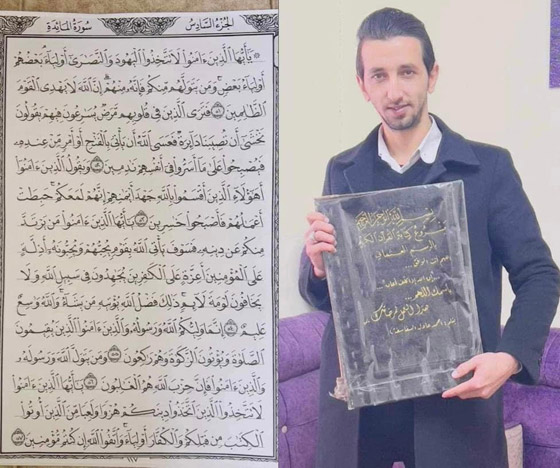 الجُزءُ السَّادِسُ سُورَةُ المَائِدَةِ
يَٰٓأَيُّهَا ٱلَّذِينَ ءَامَنُوا۟ لَا تَتَّخِذُوا۟ ٱلْيَهُودَ وَٱلنَّصَٰرَىٰٓ أَوْلِيَآءَ بَعْضُهُمْ
أَوْلِيَآءُ بَعْضٍ وَمَن يَتَوَلَّهُم مِّنكُمْ فَإِنَّهُۥ مِنْهُمْ إِنَّ ٱللَّهَ لَا يَهْدِى ٱلْقَوْمَ
ٱلظَّٰلِمِينَ ٥١ فَتَرَى ٱلَّذِينَ فِى قُلُوبِهِم مَّرَضٌ يُسَٰرِعُونَ فِيهِمْ يَقُولُونَ
نَخْشَىٰٓ أَن تُصِيبَنَا دَآئِرَةٌ فَعَسَى ٱللَّهُ أَن يَأْتِىَ بِٱلْفَتْحِ أَوْ أَمْرٍ مِّنْ عِندِهِۦ
فَيُصْبِحُوا۟ عَلَىٰ مَآ أَسَرُّوا۟ فِىٓ أَنفُسِهِمْ نَٰدِمِينَ ٥٢ وَيَقُولُ ٱلَّذِينَ ءَامَنُوٓا۟
أَهَٰٓؤُلَآءِ ٱلَّذِينَ أَقْسَمُوا۟ بِٱللَّهِ جَهْدَ أَيْمَٰنِهِمْ إِنَّهُمْ لَمَعَكُمْ حَبِطَتْ
أَعْمَٰلُهُمْ فَأَصْبَحُوا۟ خَٰسِرِينَ ٥٣ يَٰٓأَيُّهَا ٱلَّذِينَ ءَامَنُوا۟ مَن يَرْتَدَّ
مِنكُمْ عَن دِينِهِۦ فَسَوْفَ يَأْتِى ٱللَّهُ بِقَوْمٍ يُحِبُّهُمْ وَيُحِبُّونَهُۥٓ أَذِلَّةٍ
عَلَى ٱلْمُؤْمِنِينَ أَعِزَّةٍ عَلَى ٱلْكَٰفِرِينَ يُجَٰهِدُونَ فِى سَبِيلِ ٱللَّهِ وَلَا
يَخَافُونَ لَوْمَةَ لَآئِمٍ ذَٰلِكَ فَضْلُ ٱللَّهِ يُؤْتِيهِ مَن يَشَآءُ وَٱللَّهُ وَٰسِعٌ
عَلِيمٌ ٥٤ إِنَّمَا وَلِيُّكُمُ ٱللَّهُ وَرَسُولُهُۥ وَٱلَّذِينَ ءَامَنُوا۟ ٱلَّذِينَ يُقِيمُونَ
ٱلصَّلَوٰةَ وَيُؤْتُونَ ٱلزَّكَوٰةَ وَهُمْ رَٰكِعُونَ ٥٥ وَمَن يَتَوَلَّ ٱللَّهَ وَرَسُولَهُۥ
وَٱلَّذِينَ ءَامَنُوا۟ فَإِنَّ حِزْبَ ٱللَّهِ هُمُ ٱلْغَٰلِبُونَ ٥٦ يَٰٓأَيُّهَا ٱلَّذِينَ ءَامَنُوا۟
لَا تَتَّخِذُوا۟ ٱلَّذِينَ ٱتَّخَذُوا۟ دِينَكُمْ هُزُوًا وَلَعِبًا مِّنَ ٱلَّذِينَ أُوتُوا۟
ٱلْكِتَٰبَ مِن قَبْلِكُمْ وَٱلْكُفَّارَ أَوْلِيَآءَ وَٱتَّقُوا۟ ٱللَّهَ إِن كُنتُم مُّؤْمِنِينَ ٥٧
١١٧
بسم الله الرحمن الرحيم
مشروع كتابة القرآن الكريم
بالرسم العثماني
باسمك اللهم ...